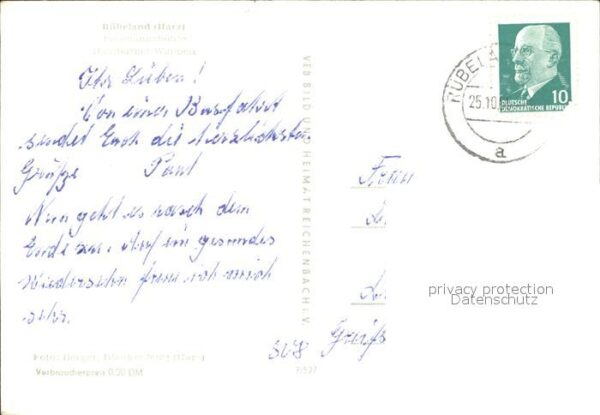 Rübeland (Harz)
Ihr Lieben!
Von einer Busfahrt
sendet Euch die herzlichsten
Grüße Paul
Nun geht es rasch dem
Ende zu. Auf ein gesundes
Wiedersehn freue ich mich
sehr.
Verbraucherpreis 0,20 DM
VEB BILD UND HEIMAT REICHENBACH I. V.
RÜBELAND
25.10
a
DEUTSCHE
DEMOKRATISCHE REPUBLIK
10
Frau
privacy protection
Datenschutz